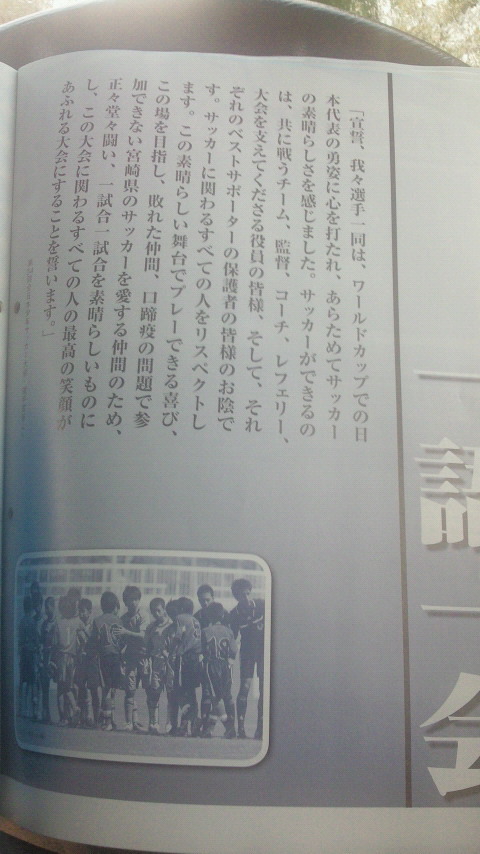 「宣誓、我々選手一同は、ワールドカップでの日
本代表の勇姿に心を打たれ、あらためてサッカー
の素晴らしさを感じました。サッカーができるの
は、共に戦うチーム、監督、コーチ、レフェリー、
大会を支えてくださる役員の皆様、そして、それ
ぞれのベストサポーターの保護者の皆様のお陰で
す。サッカーに関わるすべての人をリスペクトし
ます。この素晴らしい舞台でプレーできる喜び、
この場を目指し、敗れた仲間、口蹄疫の問題で参
加できない宮崎県のサッカーを愛する仲間のため、
正々堂々闘い、一試合一試合を素晴らしいものに
し、この大会に関わるすべての人の最高の笑顔が
あふれる大会にすることを誓います。」